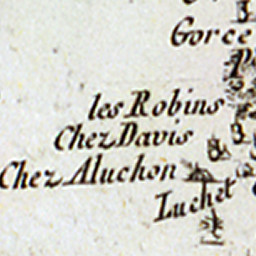 Gorce
les Robins
Chez Davis
Chez Aluchon
Luchet